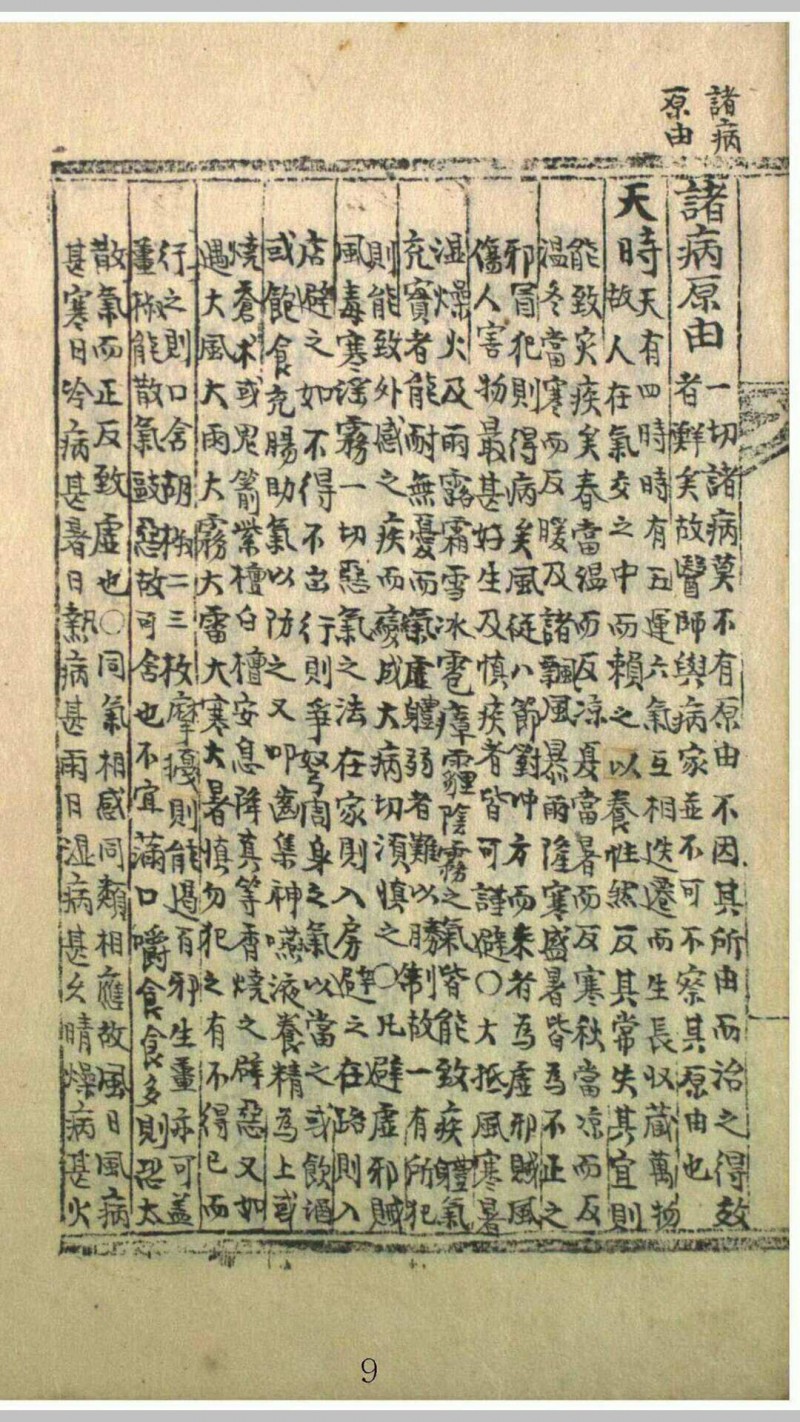 諸病
原由
諸病原由 一切諸病莫不有原由不因其所由而治之得效
者鮮矣故醫師與病家並不可不察其原由也
天時 天有四時時有五運六氣互相迭遷而生長収藏萬物
故人在氣交之中而賴之以養性然反其常失其宜則
能致灾疾矣春當温而反凉夏當暑而反寒秋當凉而反
温冬當寒而反暖及諸飄風暴雨隆寒盛暑皆爲不正之
邪冒犯則得病矣風從八節對冲方而来者爲虚邪賊風
傷人害物最甚好生及慎疾者皆可謹避〇大抵風寒暑
湿燥火及雨露霜雪氷雹瘴霾陰霧之氣皆能致疾軆氣
充實者能耐無憂而氣虚軆弱者難以勝制故一有所犯
則能致外感之疾而變成大病切須慎之〇凡避虚邪賊
風毒寒淫霧一切惡氣之法在家則入房避之在路則入
店避之如不得不出行則爭努周身之氣以當之或飲酒
或飽食充腸助氣以防之又叩齒集神嚥液養精爲上或
燒蒼术或鬼箭紫檀白檀安息降真等香燒之辟惡又如
遇大風大雨大霧大雷大寒大暑慎勿犯之有不得已而
行之則口含胡椒二三枚摩擾則能遏百邪生薑亦可盖
薑椒能散氣敵惡故可含也不宜滿口嚼食食多則恐太
散氣而正反致虚也〇同氣相感同類相應故風日風病
甚寒日吟病甚暑日熱病甚雨日湿病甚久晴燥病甚火
9